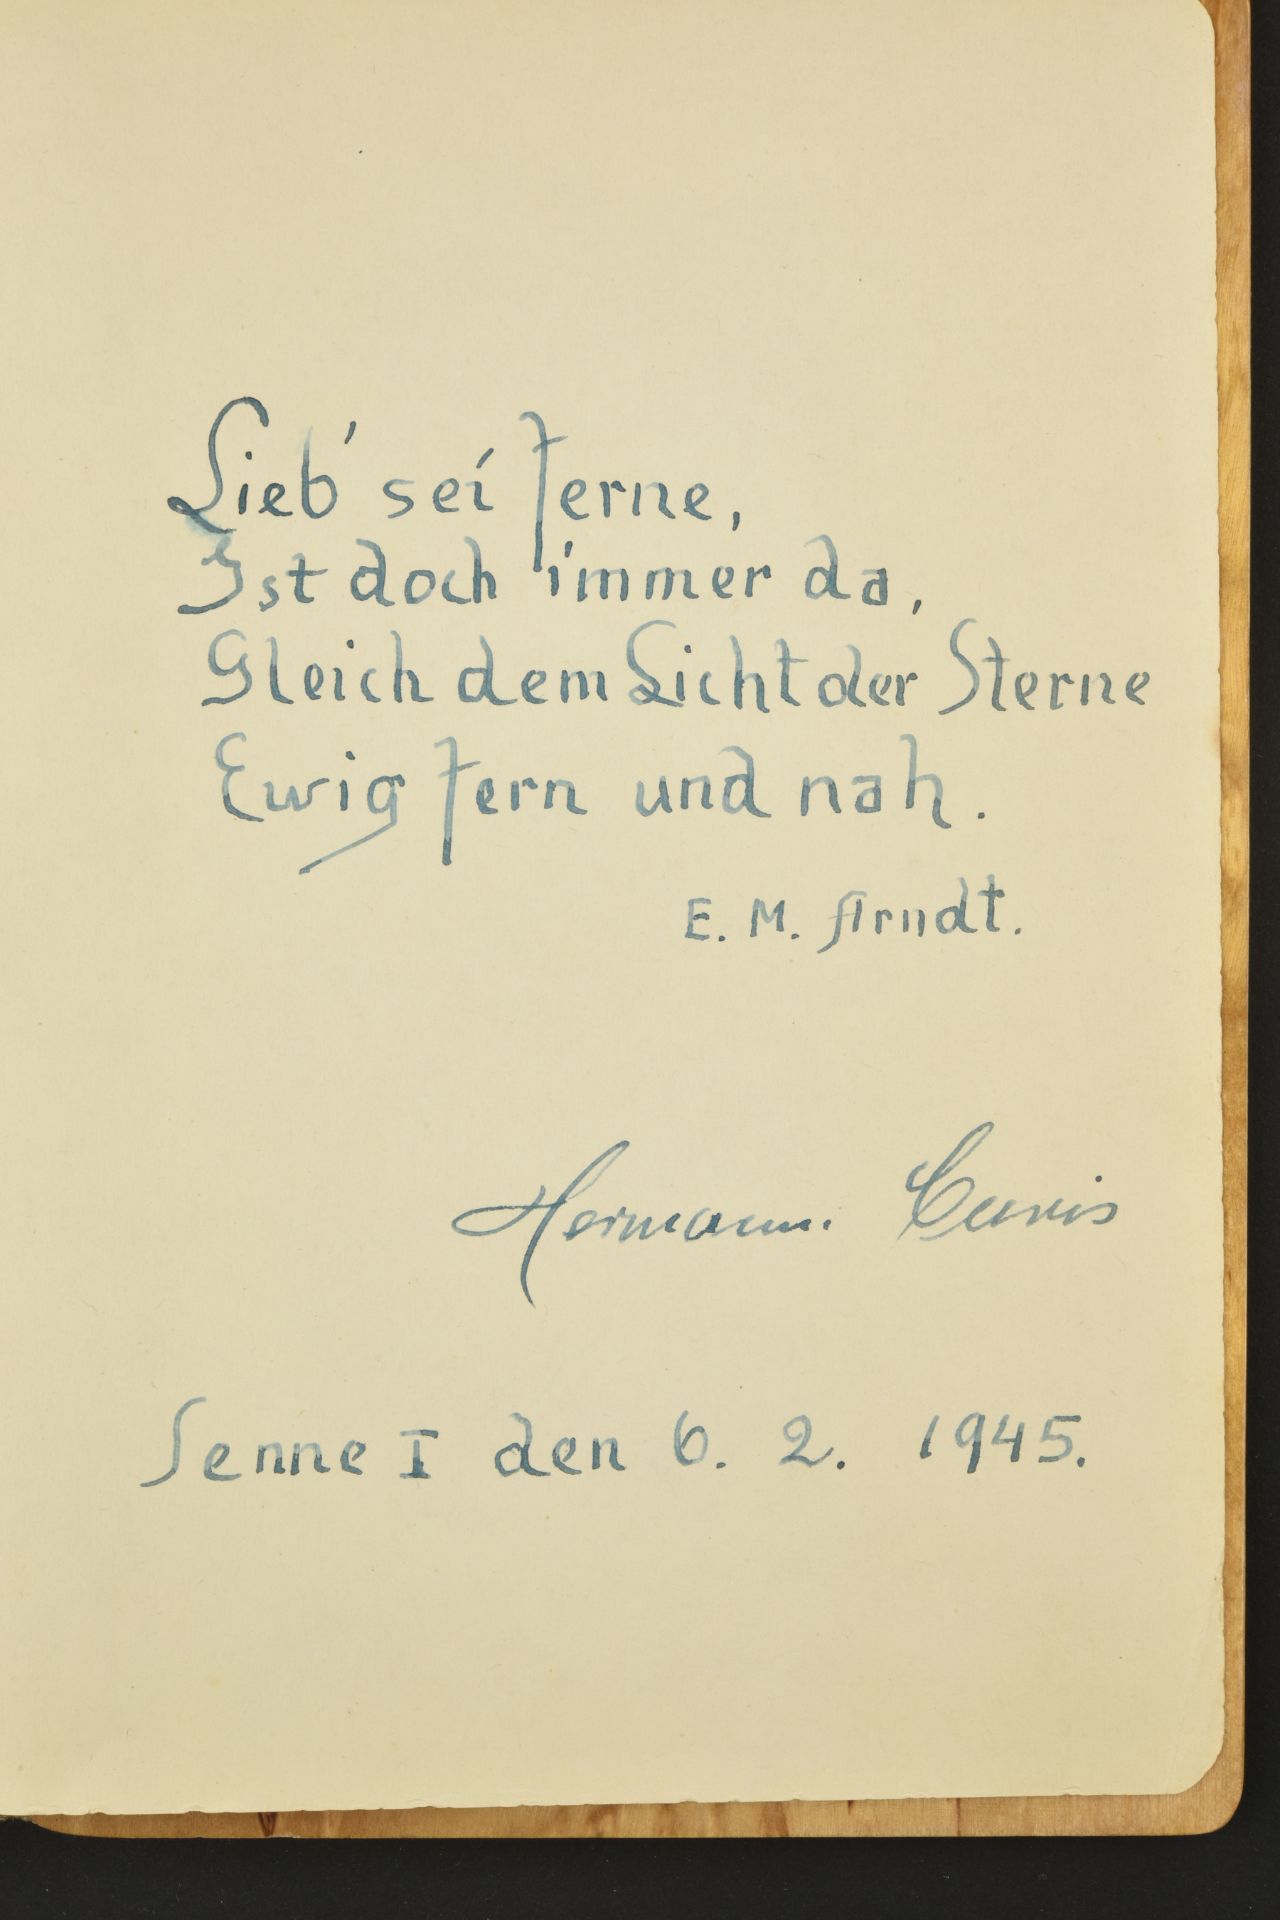 Lieb' sei ferne,
Ist doch immer da,
Gleich dem Licht der Sterne
Ewig fern und nah.
E. M. Arndt.
Hermann
Senne I den 6. 2. 1945.